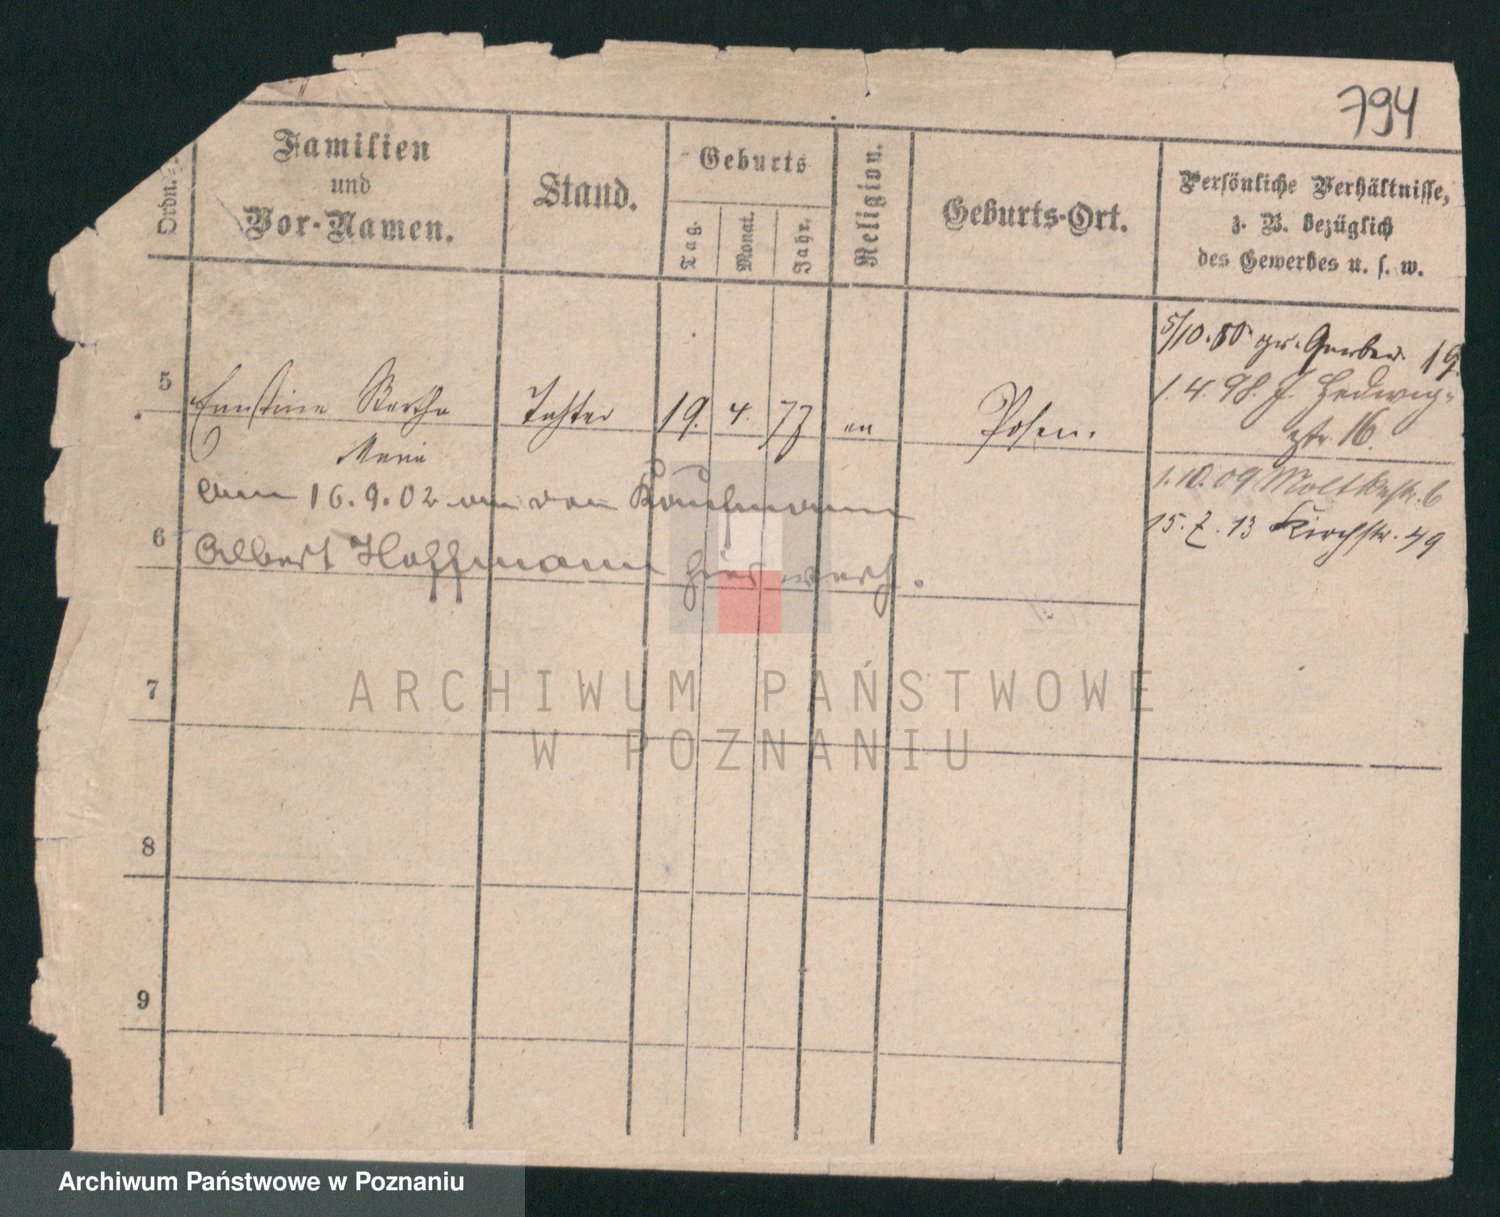 794
Ordn.
Familien
und
Vor-Namen.
Stand.
Geburts
Tag.
Monat.
Jahr.
Religion.
Geburts-Ort.
Persönliche Verhältnisse,
z. B. bezüglich
des Gewerbes u. s. w.
5/10. 80. gr. Gerber 19.
5 Ernstine Bertha Tochter 19. 4. 77 ev Posen.
Marie
1. 4. 98. Hedwig-
str. 16.
1. 10. 09 Moltkestr. 6
15. 7. 13 Kirchstr. 49
am 16. 9. 02 an den Kaufmann
6 Albert Hoffmann hier verh.
7
8
9
ARCHIWUM PAŃSTWOWE
W POZNANIU
Archiwum Państwowe w Poznaniu